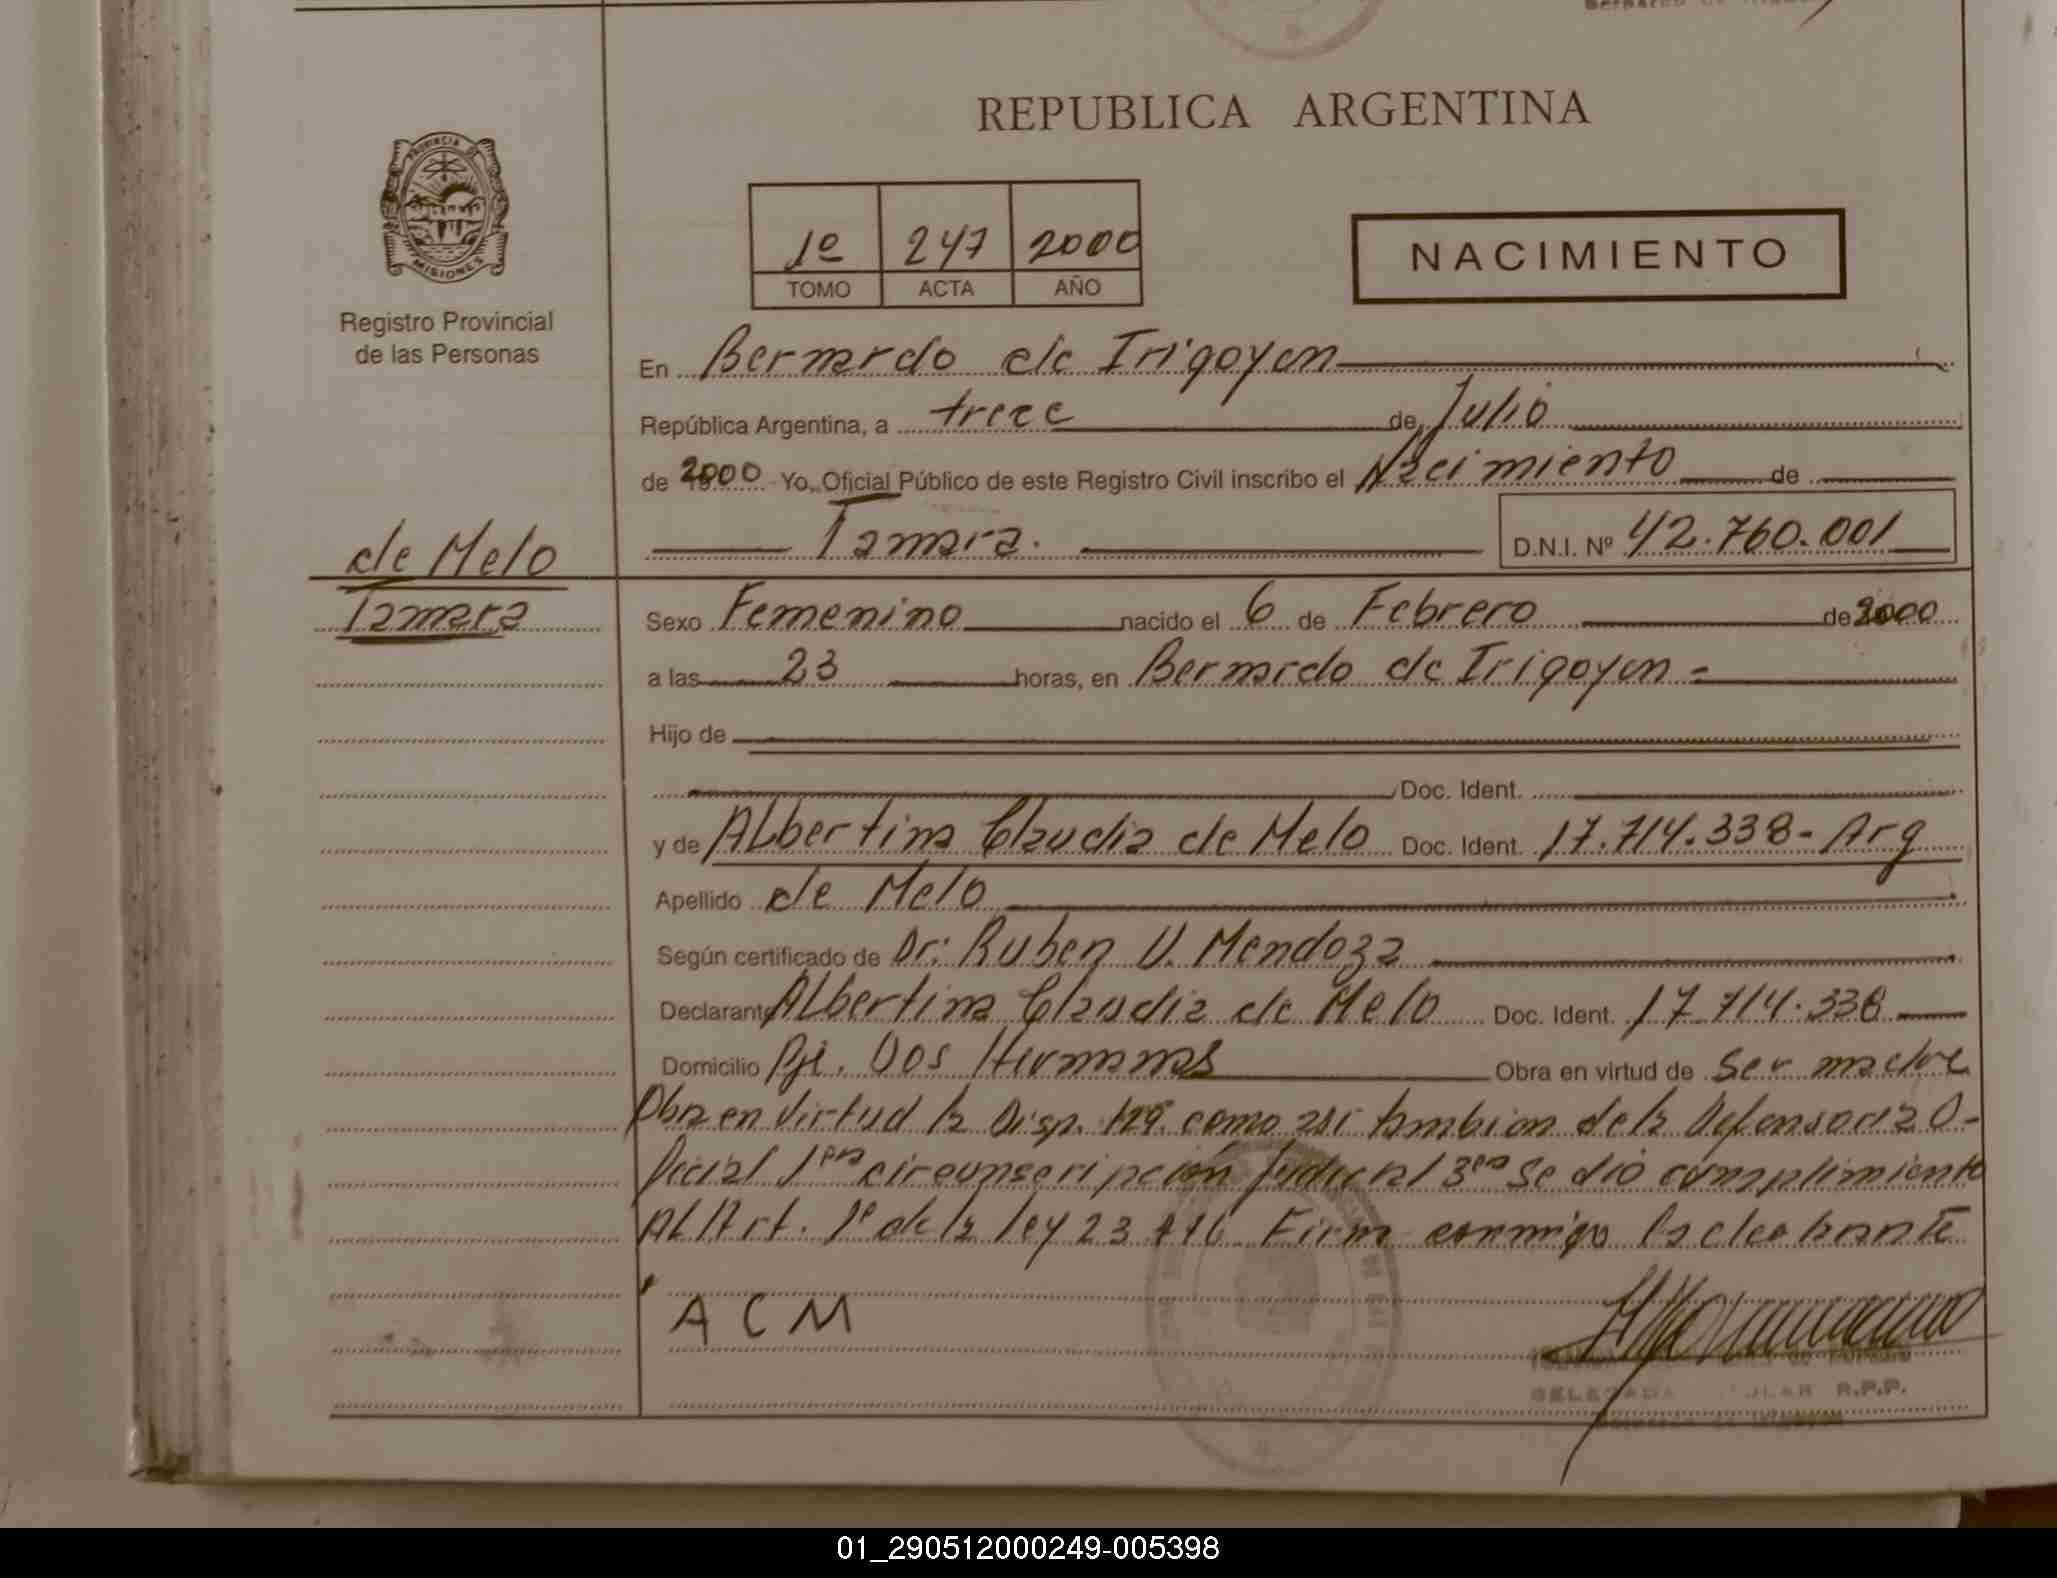 REPUBLICA ARGENTINA
PROVINCIA DE
MISIONES
Registro Provincial
de las Personas
1º 247 2000
TOMO ACTA AÑO
NACIMIENTO
En Bernardo de Irigoyen
República Argentina, a trece de Julio
de 2000 Yo, Oficial Público de este Registro Civil inscribo el Nacimiento de
Tamara. D.N.I. Nº 42.760.001
de Melo
Tamara
Sexo Femenino nacido el 6 de Febrero de 2000
a las 23 horas, en Bernardo de Irigoyen -
Hijo de
Doc. Ident.
y de Albertina Claudia de Melo Doc. Ident. 17.714.338- Arg
Apellido de Melo
Según certificado de Dr: Ruben V. Mendoza
Declarante Albertina Claudia de Melo Doc. Ident. 17.714.338
Domicilio Pje. Dos Hermanas Obra en virtud de Ser madre
Obra en virtud la Disp. 129 como asi tambien de la Defensoria O-
ficial 1era circunscripción Judicial 3era Se dió cumplimiento
Al Art. 1º de la ley 23 Firma conmigo la declarante
A C M
R.P.P.
01_290512000249-005398